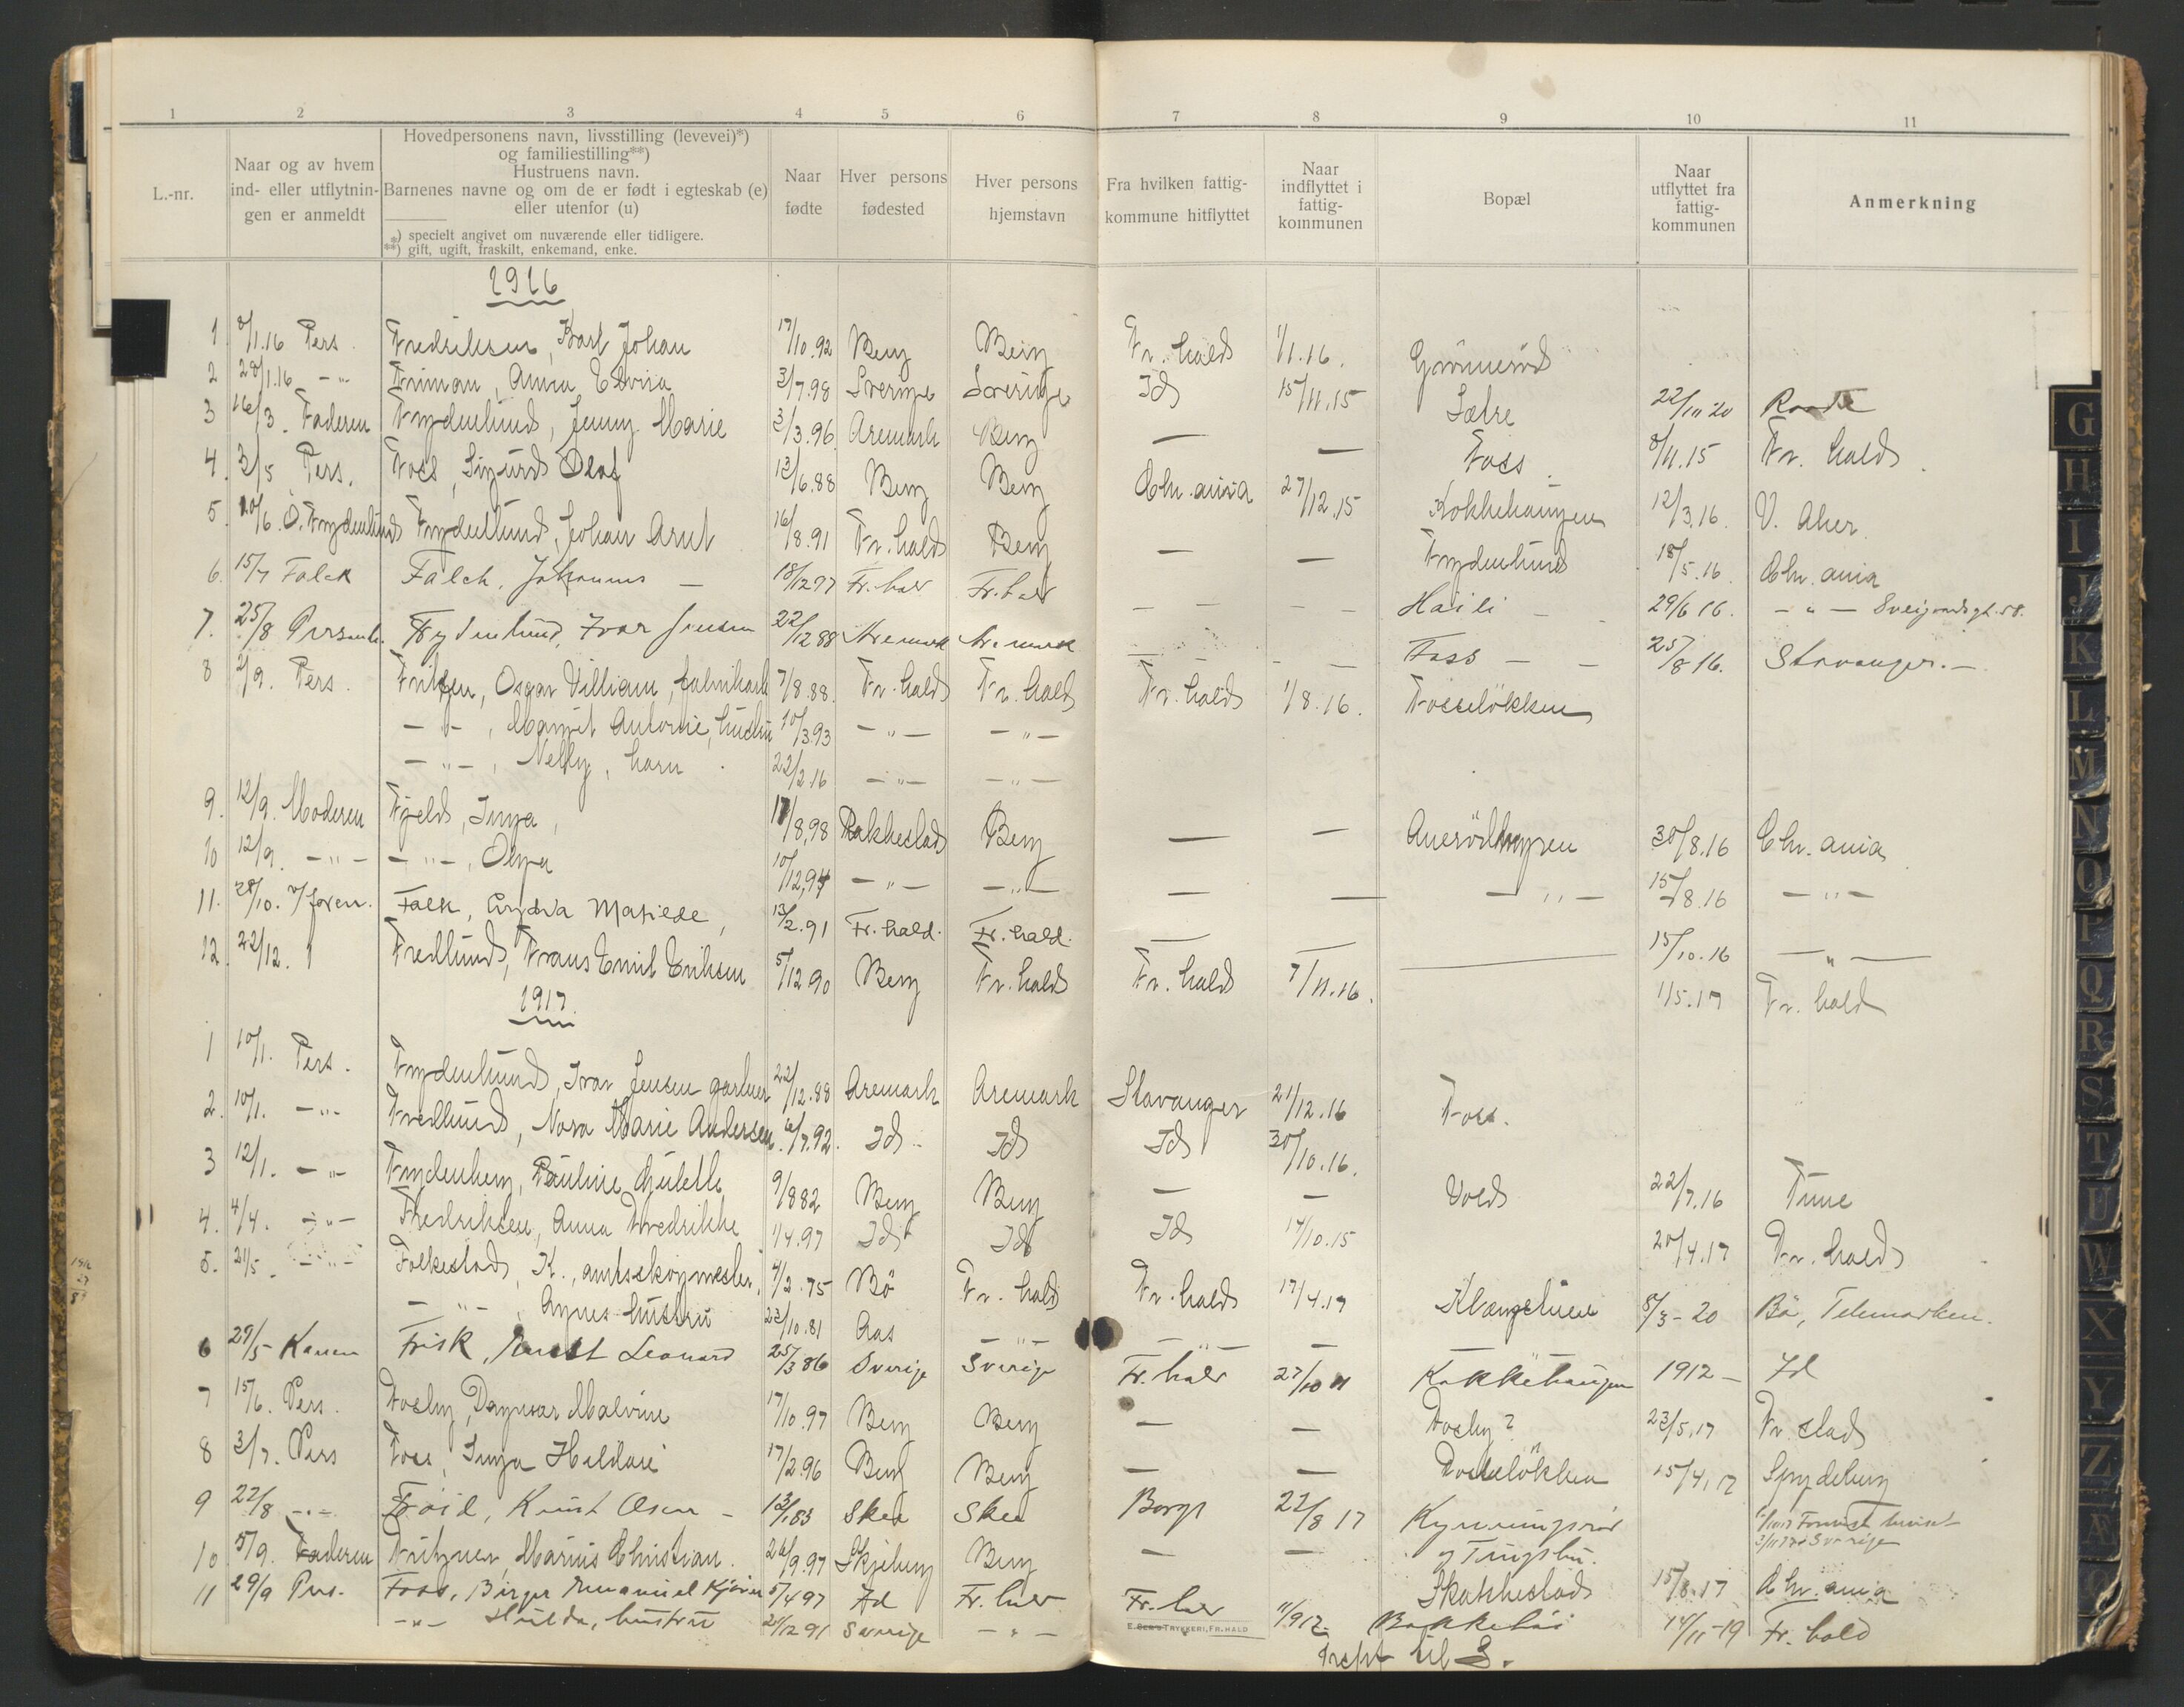 1 2 3 4 5 6 7 8 9 10 11
L.-nr.
Naar og av hvem
ind- eller utflytnin-
gen er anmeldt
Hovedpersonens navn, livsstilling (levevei)*)
og familiestilling**)
Hustruens navn.
Barnenes navne og om de er født i egteskab (e)
eller utenfor (u)
*) specielt angivet om nuværende eller tidligere.
**) gift, ugift, fraskilt, enkemand, enke.
Naar
fødte
Hver persons
fødested
Hver persons
hjemstavn
Fra hvilken fattig-
kommune hitflyttet
Naar
indflyttet i
fattig-
kommunen
Bopæl
Naar
utflyttet fra
fattig-
kommunen
Anmerkning
1916
1 8/1.16 Pers. Fredriksen, Karl Johan 17/10.92 Berg Berg Fr.hald 1/1.16. Grönneröd
2 28/1.16 -"- Friman, Anna Elvira 3/7.98 Sverige Sverige Id 15/11.15 Sætre 22/11 20 Raade
3 16/3. Faderen Frydenlund, Jenny Marie 3/3.96 Aremark Berg — — Foss 8/11.15 Fr. hald.
4. 3/5 Pers. Foss, Sigurd Olaf 13/6.88 Berg Berg Chr.ania 27/12.15 Kokkehaugen 12/3.16. V. Aker.
5. 10/6 O. Frydenlund Frydenlund, Johan Arnt 16/8.91 Fr.hald Berg — — Frydenlund 18/5.16. Chr.ania
6. 15/7 Falck Falck, Johannes — 18/12 97 Fr.hald Fr.hald — — — — Haili — 29/6 16. -"-
7. 25/8 Personl. Frydenlund, Ivar Jensen 22/12 88 Aremark Aremark — — — Foss — — 25/8 16. Stavanger.—
8 2/9. Pers. Fritjen, Osgar Villiam, fabrikarb 7/8.88. Fr.hald Fr.hald Fr.hald 1/8.16. Fosseløkken
-"-, Margit Antonie, hustru 10/3.93 -"- -"-
-"-, Nelly, barn. 22/2.16 -"- -"-
9. 12/9. Moderen Fjeld, Inga, 17/8,98 Rakkestad Berg — — 30/8.16 Chr.ania
10 12/9. -"- -"-, Olga 10/12,94 -"- -"- — — -"- 15/8.16 -"-
11. 28/10. Falck, Matilde, 13/2.91 Fr.hald. Fr.hald. — — — 15/10.16 -"-
12. 22/12. Fredlund, Frans Emil Eriksen 5/12 90 Berg Fr.hald Fr.hald 7/11.16. 1/5.17 Fr.hald
1917.
1 10/1. Pers. Frydenlund, Ivar Jensen gartner 22/12.88 Aremark Aremark Stavanger 21/12.16 Foss.
2. 10/1. -"- Fredlund, Nora Marie Andersen. 6/7.92. Id Id Id 30/10.16.
3 12/1. -"- Frydenberg, Pauline Gulette 9/8 82 Berg Berg — — Vold 22/7.16 Tune
4. 4/4. -"- Fredriksen, Anna Fredrikke 1/4.97 Id Id Id 14/10.15 20/4.17 Fr.hald
5. 21/5. -"- Folkestad, K., amtsskogmester. 4/2.75 Bö Fr.hald Fr.hald 17/4.17 8/3-20 Bö, Telemarken.
-"-, Agnes hustru 23/10.81 Aas -"- -"- —
6 29/5 Konen Frisk, Ernst Leonard 25/3 86 Sverige Sverige Fr.hald 27/10 11 Kokkehaugen 1912 — Id
7 15/6. Pers. Fosby, Dagmar Malvine 17/10.97 Berg Berg — — Fosby? 23/5.17 Fr.stad
8 3/7. Pers Foss, Inga Hildari 17/2.96 Berg Berg — — Fosseløkken 15/4.17 Spydeberg
9 22/8 -"- Froid, Knut Olsen — 13/1.83 Skee Skee Borge 22/8 17 Kynningsrød
og Tingstu.
10 5/9. Faderen Fritzner, Marius Christian. 26/9.97 Skjeberg Berg — — Skakkestad 15/8.17 Chr.ania
11 29/9 Pers. Foss, Birger Emanuel 5/4 97 Id Fr.hald Fr.hald 11/9 17. Bakkehøi 14/11-19 Fr.hald
-"- Hulda, hustru 21/12 91 Sverige -"-
E. Sem's Trykkeri, Fr.hald
til S.
G
H
I
J
K
L
M
N
O
P
Q
R
S
T
U
W
X
Y
Z
Æ